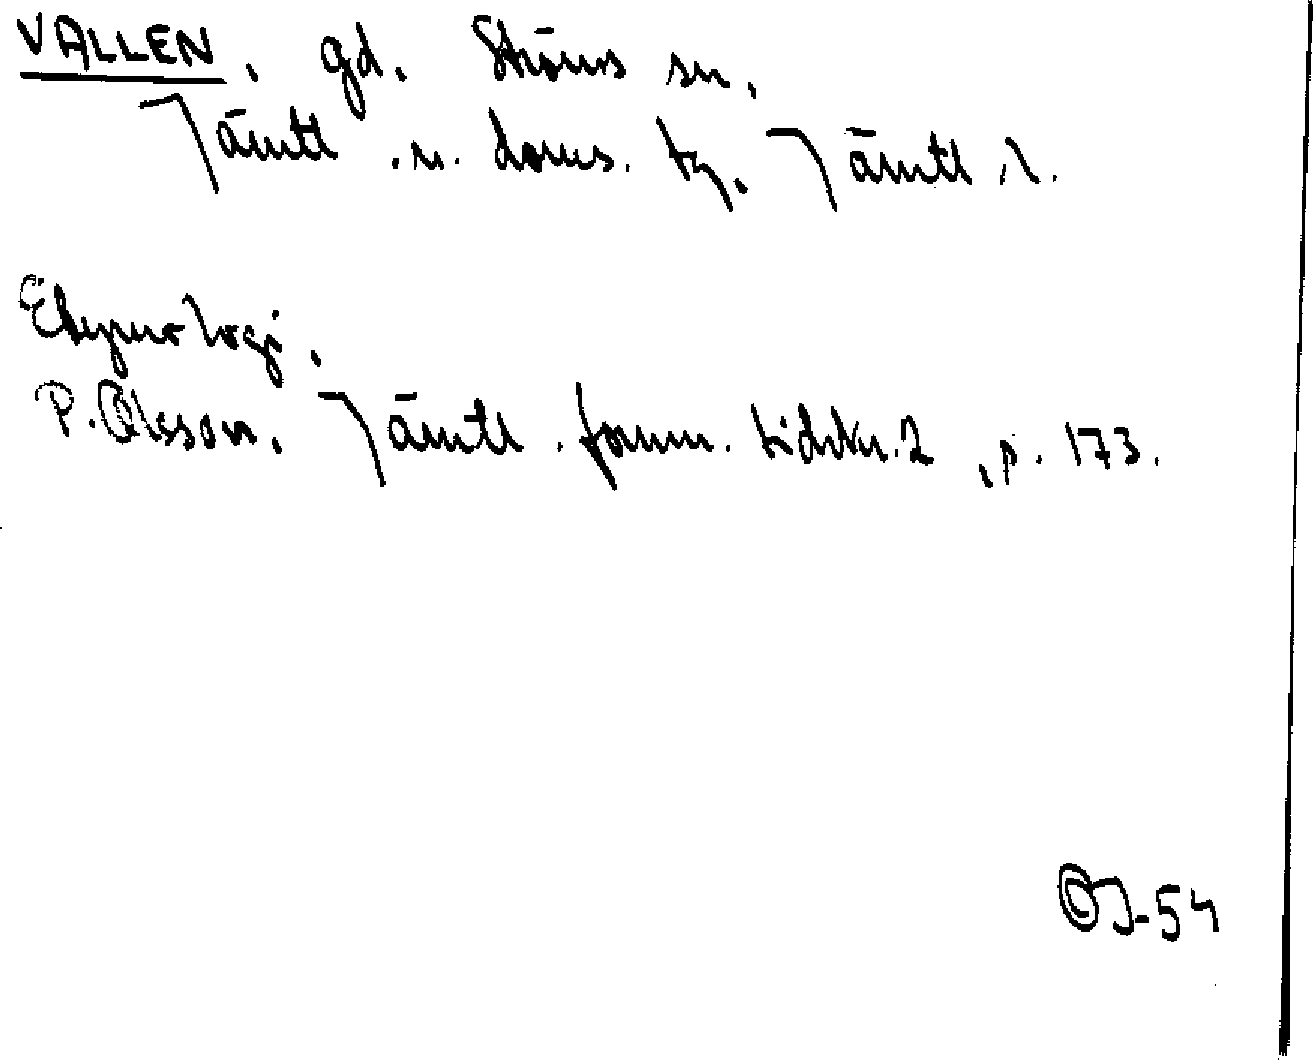 VALLEN, gd. Ströms sn.
Jämtl. n. doms. tg. Jämtl. l.
Etymologi.
P. Olsson, Jämtl. fornm. tidskr. 2, p. 173.
OJ-54